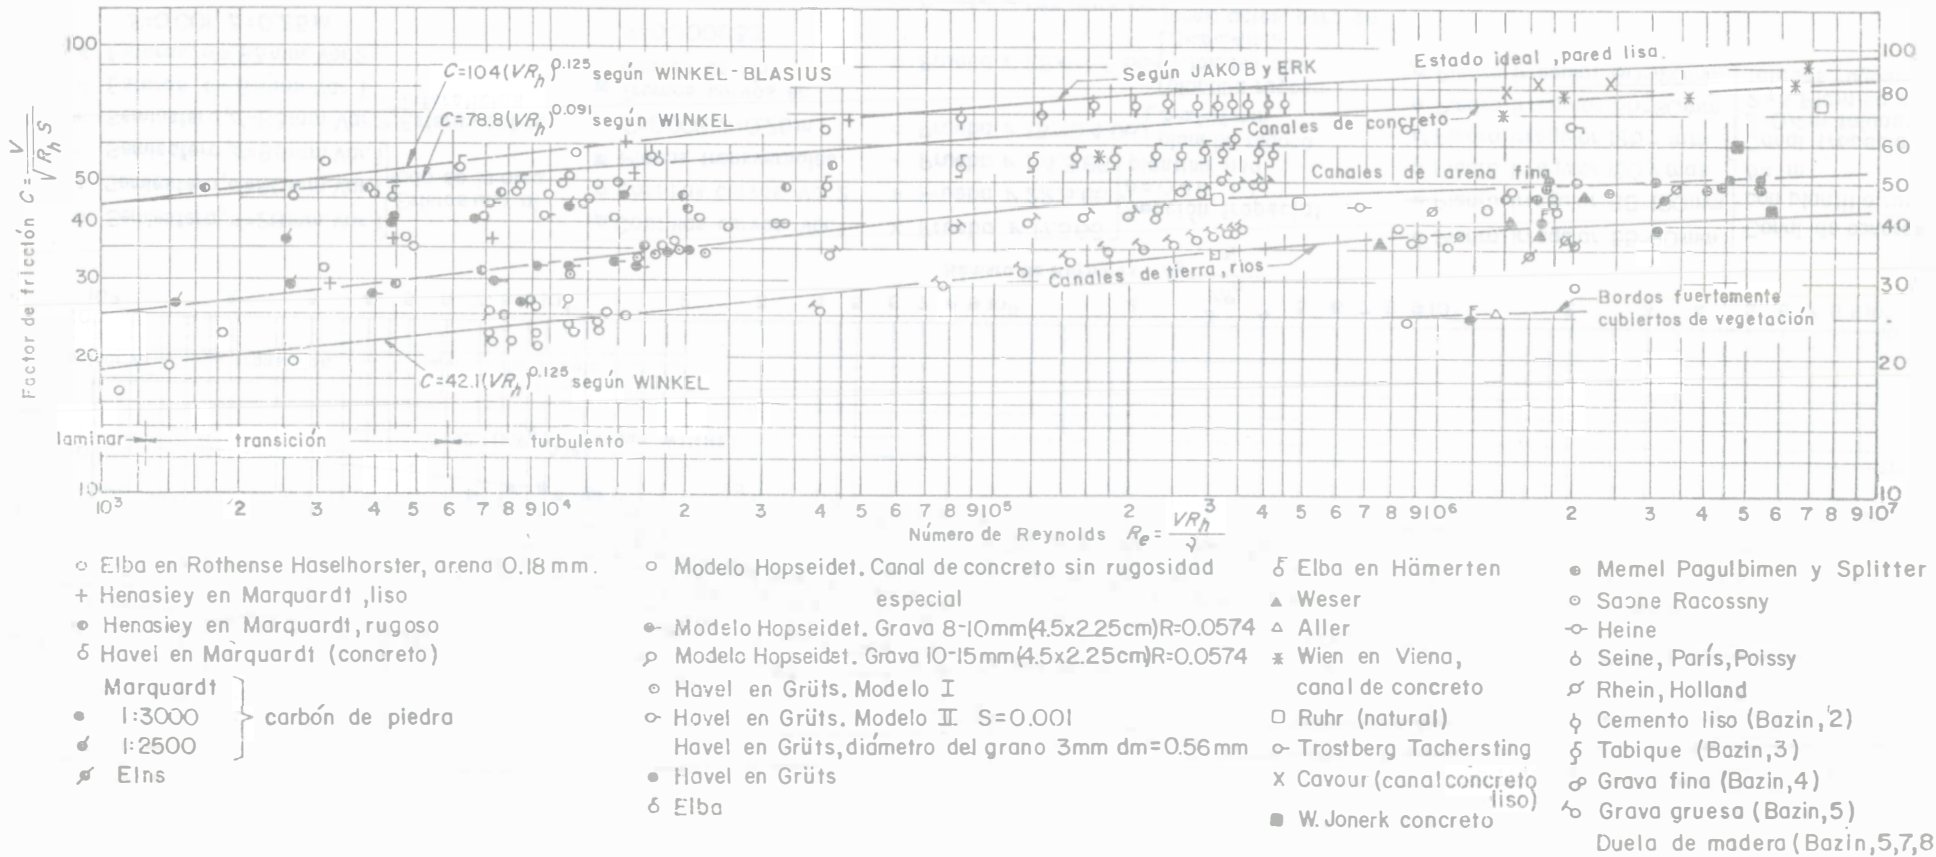 100
50
40
30
20
10
Factor de fricción C = V / √R_h S
C=104(VR_h)^0.125 según WINKEL-BLASIUS
C=78.8(VR_h)^0.091 según WINKEL
Según JAKOB y ERK
Estado ideal, pared lisa.
Canales de concreto
Canales de arena fina
Canales de tierra, ríos
Bordos fuertemente
cubiertos de vegetación
C=42.1(VR_h)^0.125 según WINKEL
100
80
60
50
40
30
20
10
laminar transición turbulento
10^3 2 3 4 5 6 7 8 9 10^4 2 3 4 5 6 7 8 9 10^5 2 3 4 5 6 7 8 9 10^6 2 3 4 5 6 7 8 9 10^7
Número de Reynolds R_e = VR_h / ν
Elba en Rothense Haselhorster, arena 0.18 mm.
Henasiey en Marquardt, liso
Henasiey en Marquardt, rugoso
Havel en Marquardt (concreto)
Marquardt
1:3000
1:2500
carbón de piedra
Elns
Modelo Hopseidet. Canal de concreto sin rugosidad
especial
Modelo Hopseidet. Grava 8-10mm(4.5x2.25cm)R=0.0574
Modelo Hopseidet. Grava 10-15mm(4.5x2.25cm)R=0.0574
Havel en Grüts. Modelo I
Havel en Grüts. Modelo II S=0.001
Havel en Grüts, diámetro del grano 3mm dm=0.56mm
Havel en Grüts
Elba
Elba en Hämerten
Weser
Aller
Wien en Viena,
canal de concreto
Ruhr (natural)
Trostberg Tachersting
Cavour (canal concreto
liso)
W. Jonerk concreto
Memel Pagulbimen y Splitter
Saone Racossny
Heine
Seine, París, Poissy
Rhein, Holland
Cemento liso (Bazin, 2)
Tabique (Bazin,3)
Grava fina (Bazin,4)
Grava gruesa (Bazin,5)
Duela de madera (Bazin,5,7,8